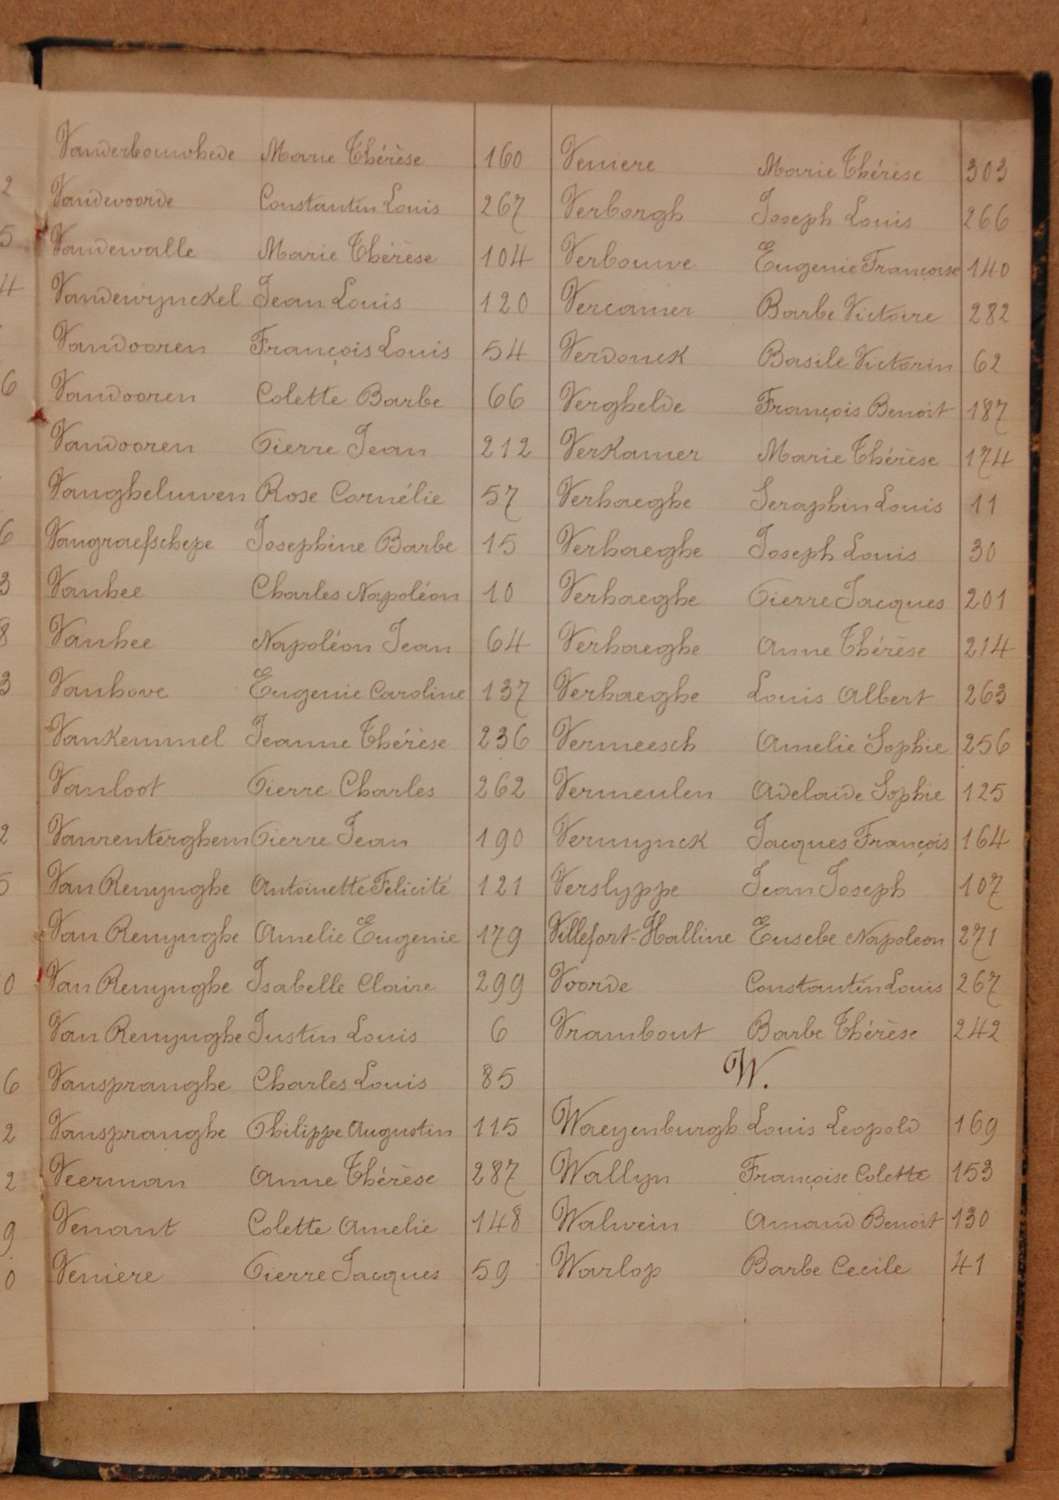 Vanderbouwhede Marie Thérèse 160
Vandevoorde Constantin Louis 267
Vandewalle Marie Thérèse 104
Vandewynckel Jean Louis 120
Vandooren François Louis 54
Vandooren Colette Barbe 66
Vandooren Pierre Jean 212
Vangheluwen Rose Cornélie 57
Vangraefschepe Josephine Barbe 15
Vanhee Charles Napoléon 10
Vanhee Napoléon Jean 64
Vanhove Eugenie Caroline 137
Vankemmel Jeanne Thérèse 236
Vanloot Pierre Charles 262
Vanrenterghem Pierre Jean 190
Van Renynghe Antoinette Felicité 121
Van Renynghe Amelie Eugenie 179
Van Renynghe Isabelle Claire 299
Van Renynghe Justin Louis 6
Vanspranghe Charles Louis 85
Vanspranghe Philippe Augustin 115
Veerman Anne Thérèse 287
Venant Colette Amelie 148
Veniere Pierre Jacques 59
Veniere Marie Thérèse 303
Verborgh Joseph Louis 266
Verbouwe Eugenie Françoise 140
Vercamer Barbe Victoire 282
Verdonck Basile Victorin 62
Verghelde François Benoit 187
Verkamer Marie Thérèse 174
Verhaeghe Seraphin Louis 11
Verhaeghe Joseph Louis 30
Verhaeghe Pierre Jacques 201
Verhaeghe Anne Thérèse 214
Verhaeghe Louis Albert 263
Vermeesch Amelie Sophie 256
Vermeulen Adelaide Sophie 125
Vermynck Jacques François 164
Verslyppe Jean Joseph 107
Villefort-Halline Eusebe Napoleon 271
Voorde Constantin Louis 267
Vrambout Barbe Thérèse 242
W.
Waeyenburgh Louis Leopold 169
Wallyn Françoise Colette 153
Walwein Amand Benoit 130
Warlop Barbe Cecile 41